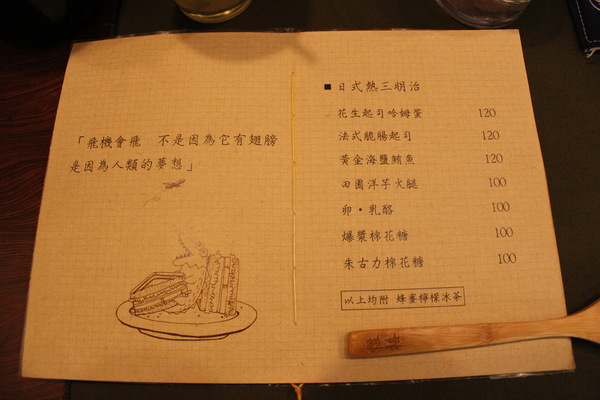 「飛機會飛 不是因為它有翅膀
是因為人類的夢想」
■日式熱三明治
花生起司哈姆蛋 120
法式脆腸起司 120
黃金海鹽鮪魚 120
田園洋芋火腿 100
卵·乳酪 100
爆漿棉花糖 100
朱古力棉花糖 100
以上均附 蜂蜜檸檬冰茶